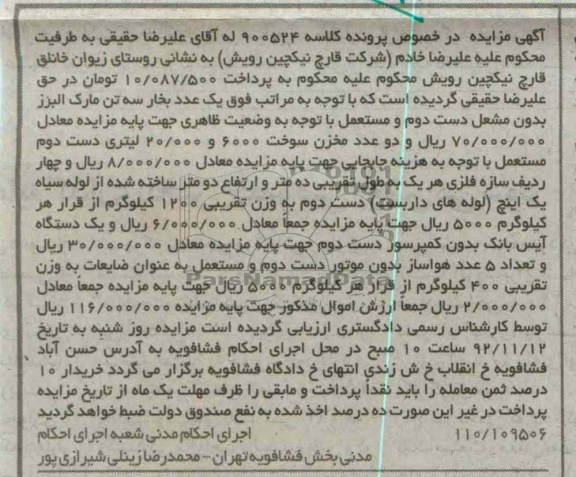 آگهی مزایده در خصوص پرونده کلاسه ۹۰۰۵۲۴ له آقای علیرضا حقیقی به طرفیت
محکوم علیه علیرضا خادم (شرکت قارچ نیکچین رویش) به نشانی روستای زیوان خانلق
قارچ نیکچین رویش محکوم علیه محکوم به پرداخت ۱۰/۰۸۷/۵۰۰ تومان در حق
علیرضا حقیقی گردیده است که با توجه به مراتب فوق یک عدد بخار سه تن مارک البرز
بدون مشعل دست دوم و مستعمل با توجه به وضعیت ظاهری جهت پایه مزایده معادل
۷۰/۰۰۰/۰۰۰ ریال و دو عدد مخزن سوخت ۶۰۰۰ و ۲۰/۰۰۰ لیتری دست دوم
مستعمل با توجه به هزینه جابجایی جهت پایه مزایده معادل ۸/۰۰۰/۰۰۰ ریال و چهار
ردیف سازه فلزی هر یک به طول تقریبی ده متر و ارتفاع دو متر ساخته شده از لوله سیاه
یک اینچ (لوله های داربست) دست دوم به وزن تقریبی ۱۲۰۰ کیلوگرم از قرار هر
کیلوگرم ۵۰۰۰ ریال جهت پایه مزایده جمعاً معادل ۶/۰۰۰/۰۰۰ ریال و یک دستگاه
آیس بانک بدون کمپرسور دست دوم جهت پایه مزایده معادل ۳۰/۰۰۰/۰۰۰ ریال
و تعداد ۵ عدد هواساز بدون موتور دست دوم و مستعمل به عنوان ضایعات به وزن
تقریبی ۴۰۰ کیلوگرم از قرار هر کیلوگرم ۵۰۰۰ ریال جهت پایه مزایده جمعاً معادل
۲/۰۰۰/۰۰۰ ریال جمعاً ارزش اموال مذکور جهت پایه مزایده ۱۱۶/۰۰۰/۰۰۰ ریال
توسط کارشناس رسمی دادگستری ارزیابی گردیده است مزایده روز شنبه به تاریخ
۹۲/۱۱/۱۲ ساعت ۱۰ صبح در محل اجرای احکام فشافویه به آدرس حسن آباد
فشافویه خ انقلاب خ ش زندی انتهای خ دادگاه فشافویه برگزار می گردد خریدار ۱۰
درصد ثمن معامله را باید نقداً پرداخت و مابقی را ظرف مهلت یک ماه از تاریخ مزایده
پرداخت در غیر این صورت ده درصد اخذ شده به نفع صندوق دولت ضبط خواهد گردید
۱۱۰/۱۰۹۵۰۶ اجرای احکام مدنی شعبه اجرای احکام
مدنی بخش فشافویه تهران - محمدرضا زینلی شیرازی پور